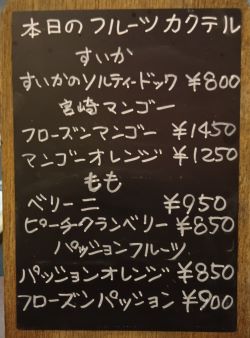 本日のフルーツカクテル
すいか
すいかのソルティードック ¥800
宮崎マンゴー
フローズンマンゴー ¥1450
マンゴーオレンジ ¥1250
もも
ベリーニ ¥950
ピーチクランベリー ¥850
パッションフルーツ
パッションオレンジ ¥850
フローズンパッション ¥900